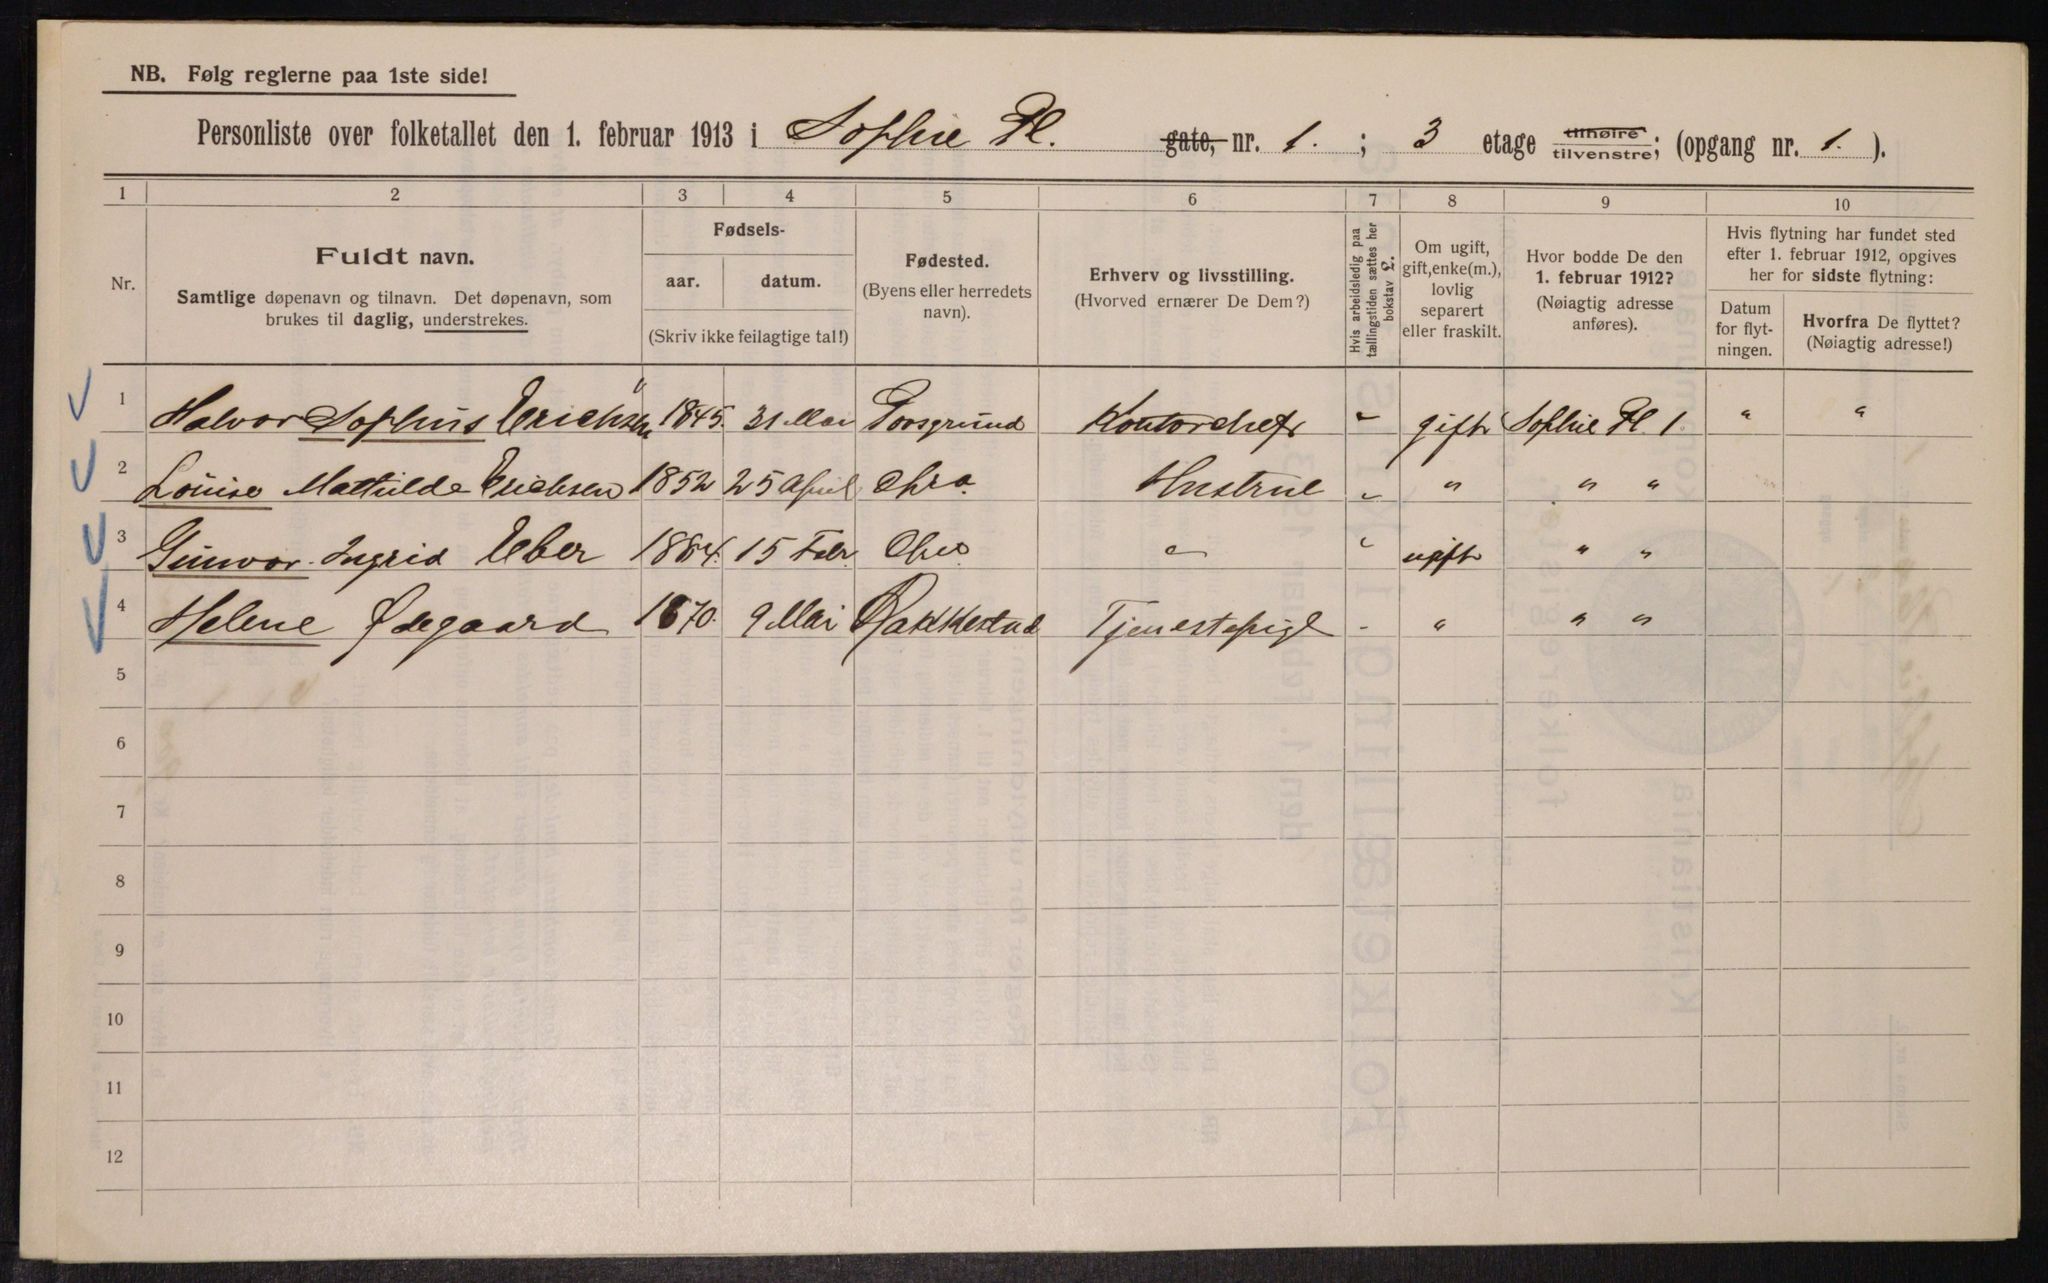 NB. Følg reglerne paa 1ste side!
Personliste over folketallet den 1. februar 1913 i Sophie Pl. gate, nr. 1. ; 3 etage tilhøire tilvenstre; (opgang nr. 1. ).
1 2 3 4 5 6 7 8 9 10
Nr.
Fuldt navn.
Samtlige døpenavn og tilnavn. Det døpenavn, som
brukes til daglig, understrekes.
Fødsels-
aar. datum.
(Skriv ikke feilagtige tal!)
Fødested.
(Byens eller herredets
navn).
Erhverv og livsstilling.
(Hvorved ernærer De Dem?)
Hvis arbeidsledig paa
tællingstiden sættes her
bokstav L.
Om ugift,
gift, enke(m.),
lovlig
separert
eller fraskilt.
Hvor bodde De den
1. februar 1912?
(Nøiagtig adresse
anføres).
Hvis flytning har fundet sted
efter 1. februar 1912, opgives
her for sidste flytning:
Datum
for flyt-
ningen.
Hvorfra De flyttet?
(Nøiagtig adresse!)
1 Halvor Sophus Erichsen 1845. 31 Mai Porsgrund Kontorchef " gift Sophie Pl. 1 " "
2 Louise Mathilde Erichsen 1852 25 April Chra. Hustrue " " " "
3 Gunvor Ingrid Eber 1884. 15 Febr. Chra " " ugift " "
4 Helene Ødegaard 1870. 9 Mai Rakkestad Tjenestepige - " " "
5
6
7
8
9
10
11
12